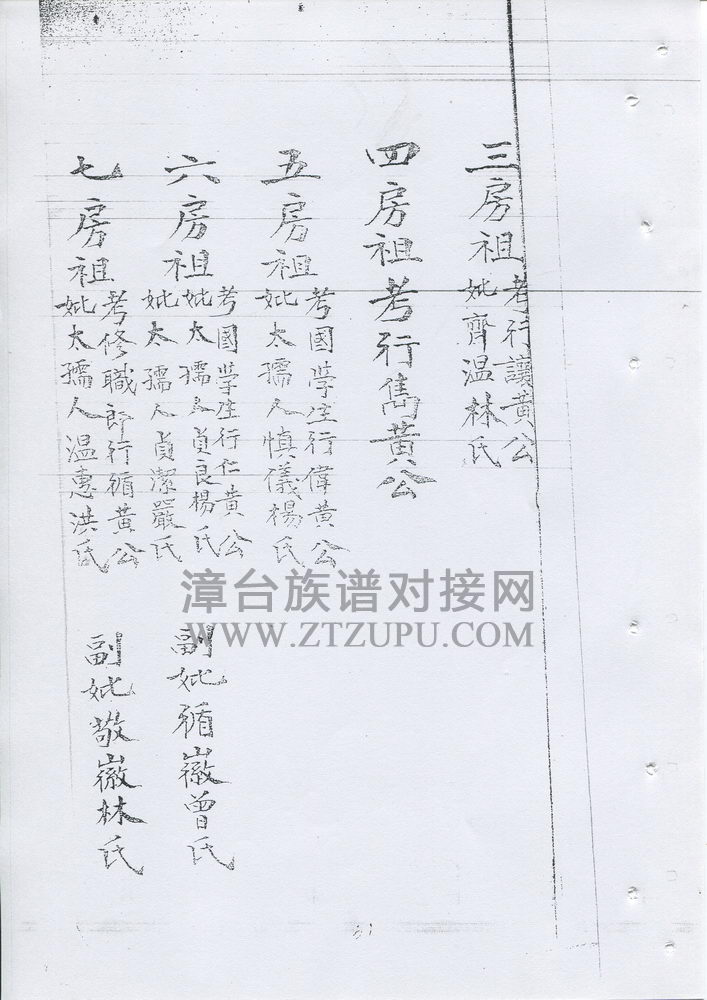 三房祖
考行讓黃公
妣齊温林氏
四房祖考行雋黃公
五房祖
考國學生行偉黃公
妣太孺人慎儀楊氏
六房祖
考國學生行仁黃公
妣太孺人貞良楊氏
妣太孺人貞潔嚴氏
副妣循徽曾氏
七房祖
考修職郎行循黃公
妣太孺人温惠洪氏
副妣敬徽林氏
漳台族谱对接网
WWW.ZTZUPU.COM